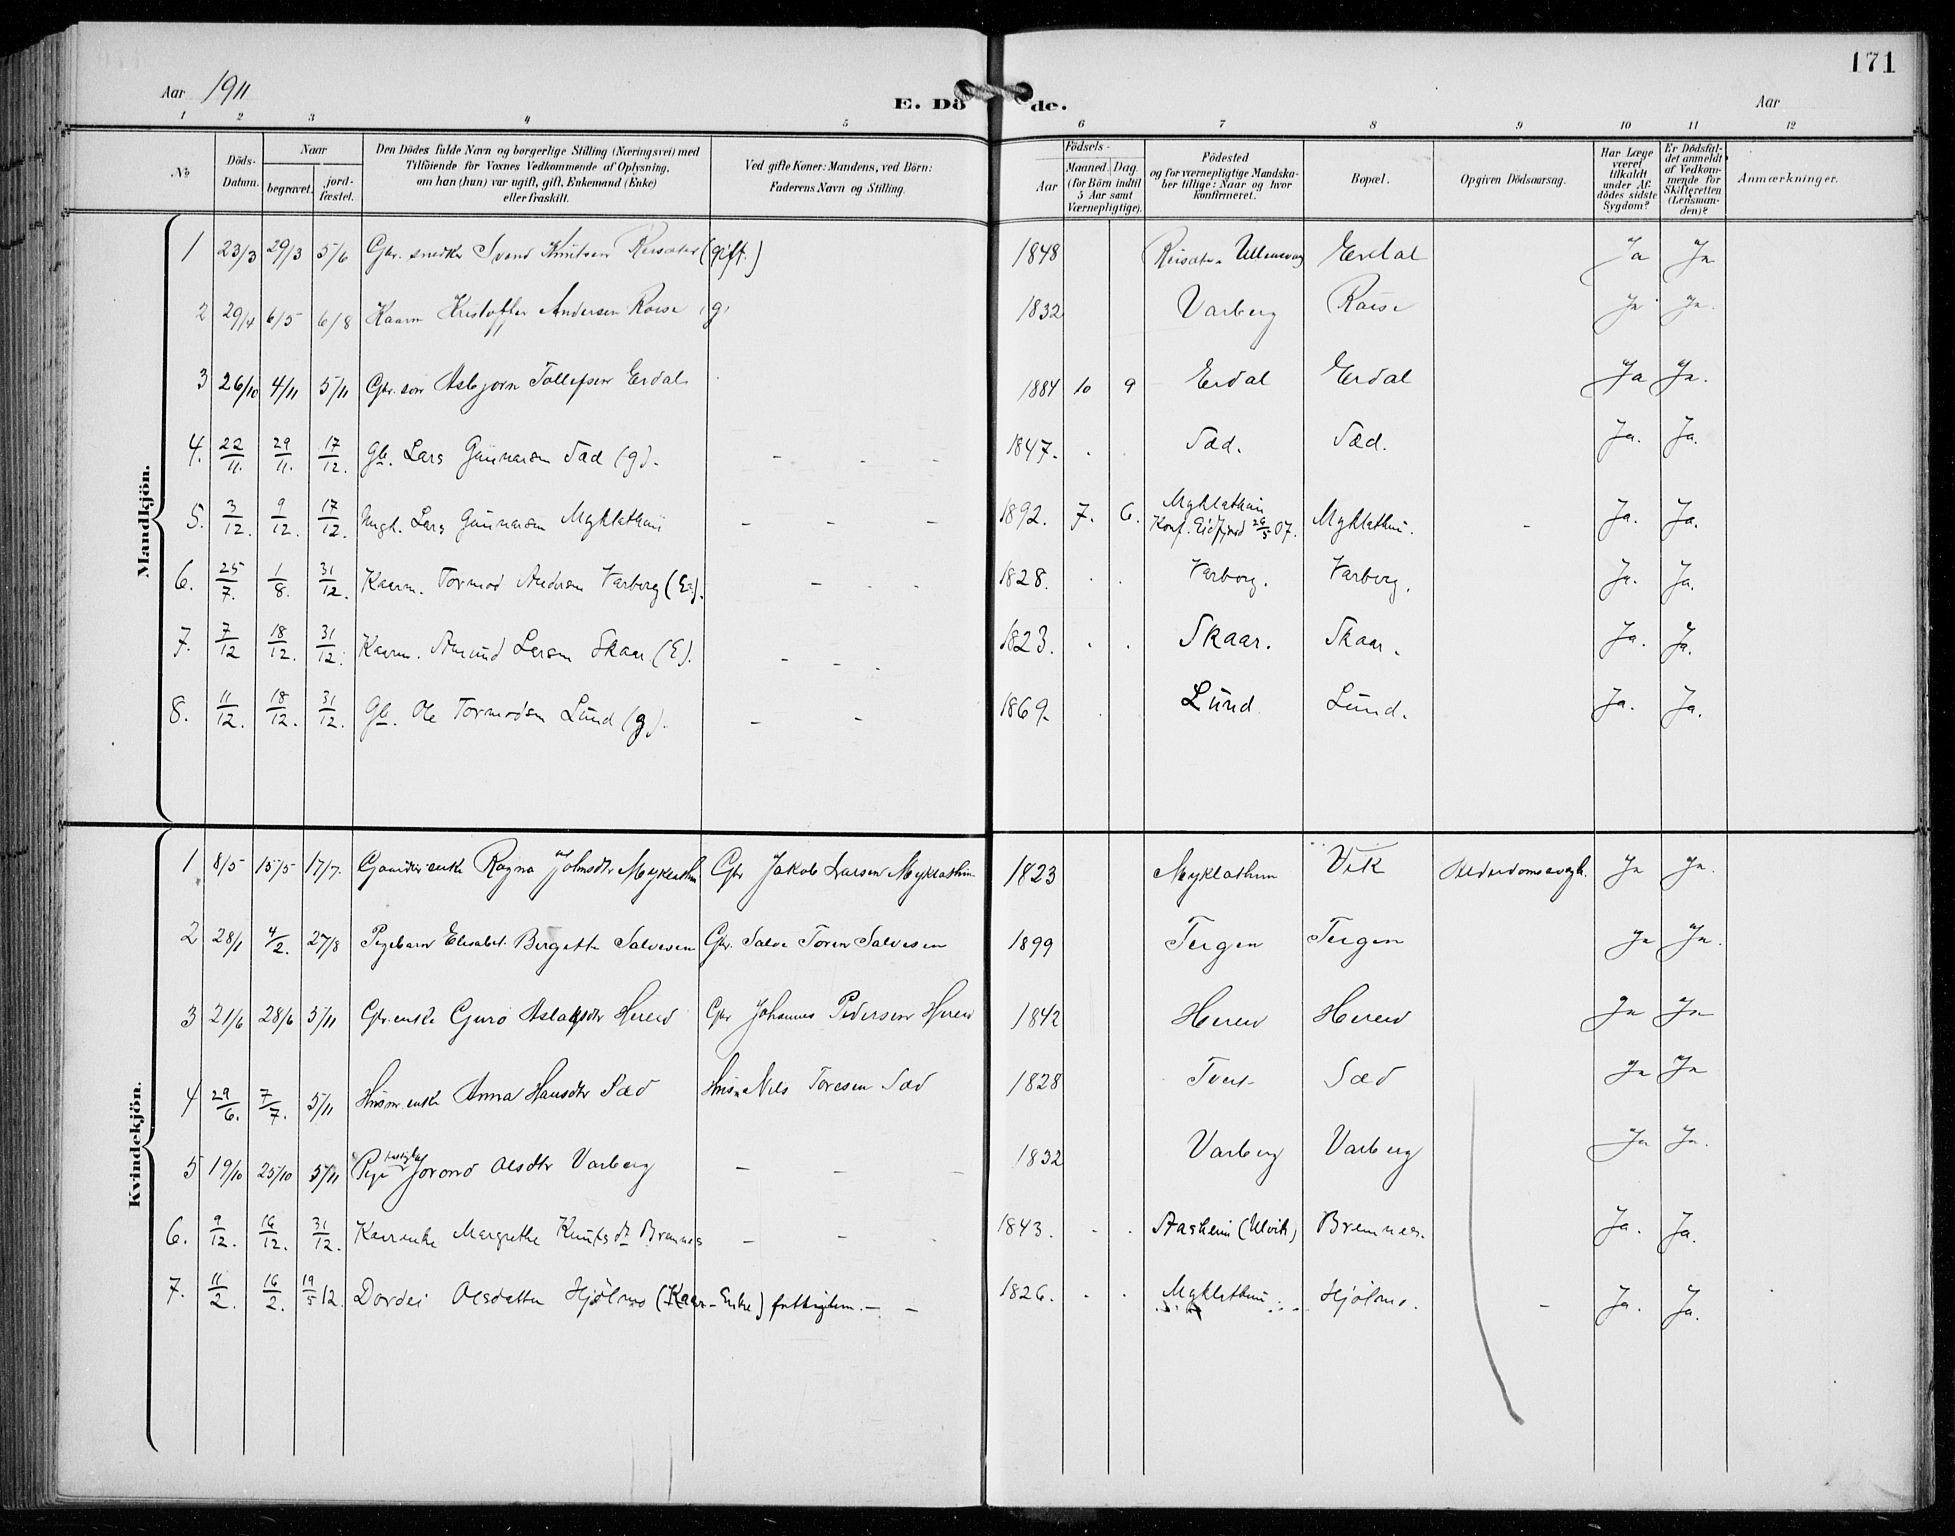 171
Aar 1911
E. Dö de.
Aar
1 2 3 4 5 6 7 8 9 10 11 12
No
Döds-
Datum.
Naar
begravet.
jord-
fæstet.
Den Dödes fulde Navn og borgerlige Stilling (Næringsvei) med
Tilföiende for Voxnes Vedkommende af Oplysning,
om han (hun) var ugift, gift, Enkemand (Enke)
eller fraskilt.
Ved gifte Koner: Mandens, ved Börn:
Faderens Navn og Stilling.
Födsels-
Aar
Maaned. Dag.
(for Börn indtil
5 Aar samt
Værnepligtige).
Födested
og for værnepligtige Mandska-
ber tillige: Naar og hvor
konfirmeret.
Bopæl.
Opgiven Dödsaarsag.
Har Læge
været
tilkaldt
under Af-
dödes sidste
Sygdom?
Er Dödsfal-
det anmeldt
af Vedkom-
mende for
Skifteretten
(Lensman-
den)?
Anmærkninger.
Mandkjön.
1 23/3 29/3 5/6 Gbr. snedker Svend Knutsen Reisæter (gift.) 1848 Reisæter Ullensvang Erdal Ja Ja
2 29/4 6/5 6/8 Kaarm Kristoffer Andersen Roise (g) 1832 Varberg Roise Ja Ja.
3 26/10 4/11 5/11 Gbr. søn Asbjørn Tollefsen Erdal 1884 10 9 Erdal Erdal Ja Ja.
4. 22/11. 29/11. 17/12. Gb. Lars Gunnarsen Sæd (g). - - - 1847. Sæd. Sæd. Ja. Ja.
5. 3/12. 9/12. 17/12. Ungk. Lars Gunnarsen Myklathun - - - 1892. 7. 6. Myklathun
Konf. Eidfjord 26/5 07. Myklathun. - Ja. Ja.
6. 25/7. 1/8. 31/12. Kaarm. Tormod Andersen Varberg (E). - - - 1828. Varberg. Varberg. Ja. Ja.
7. 7/12 18/12. 31/12. Kaarm. Amund Larsen Skaar (E). - - - 1823. Skaar. Skaar. Ja. Ja.
8. 11/12. 18/12. 31/12. Gb. Ole Tormodsen Lund (g). - - 1869. Lund Lund. Ja. Ja.
Kvindekjön.
1 8/5 15/5 17/7. enke Ragna Johnsdtr Myklathun Gbr Jakob Larsen Myklathun 1823 Myklathun Vik Alderdomssvagh. Ja Ja.
2 28/1 4/2. 27/8 Pigebarn Elisabet Bergette Salvesen Gbr. Salve Toren Salvesen 1899 Teigen Teigen Ja Ja.
3 21/6 28/6 5/11 Gbr. enke Guro Aslaksdtr Hereid Gbr Johannes Pedersen Hereid 1842 Hereid Hereid Ja Ja
4 29/6. 7/7. 5/11 Husm. enke Anna Hansdtr Sæd Husm Nils Toresen Sæd 1828 Tveit Sæd Ja Ja
5 19/10 25/10 5/11 Pige Jorand Olsdtr Varberg - - - 1832 Varberg Varberg Ja Ja.
6. 9/12. 16/12. 31/12. Kaarenke Margrethe Knutsdt Bremnes - - 1843. Aasheim (Ulvik) Bremnes. Ja. Ja.
7. 11/2. 16/2. 19/5 12. Dordei Olsdatter Hjølmo (Kaar-Enke) fattiglem. - - 1826. Myklethun Hjølmo. - Ja. Ja.